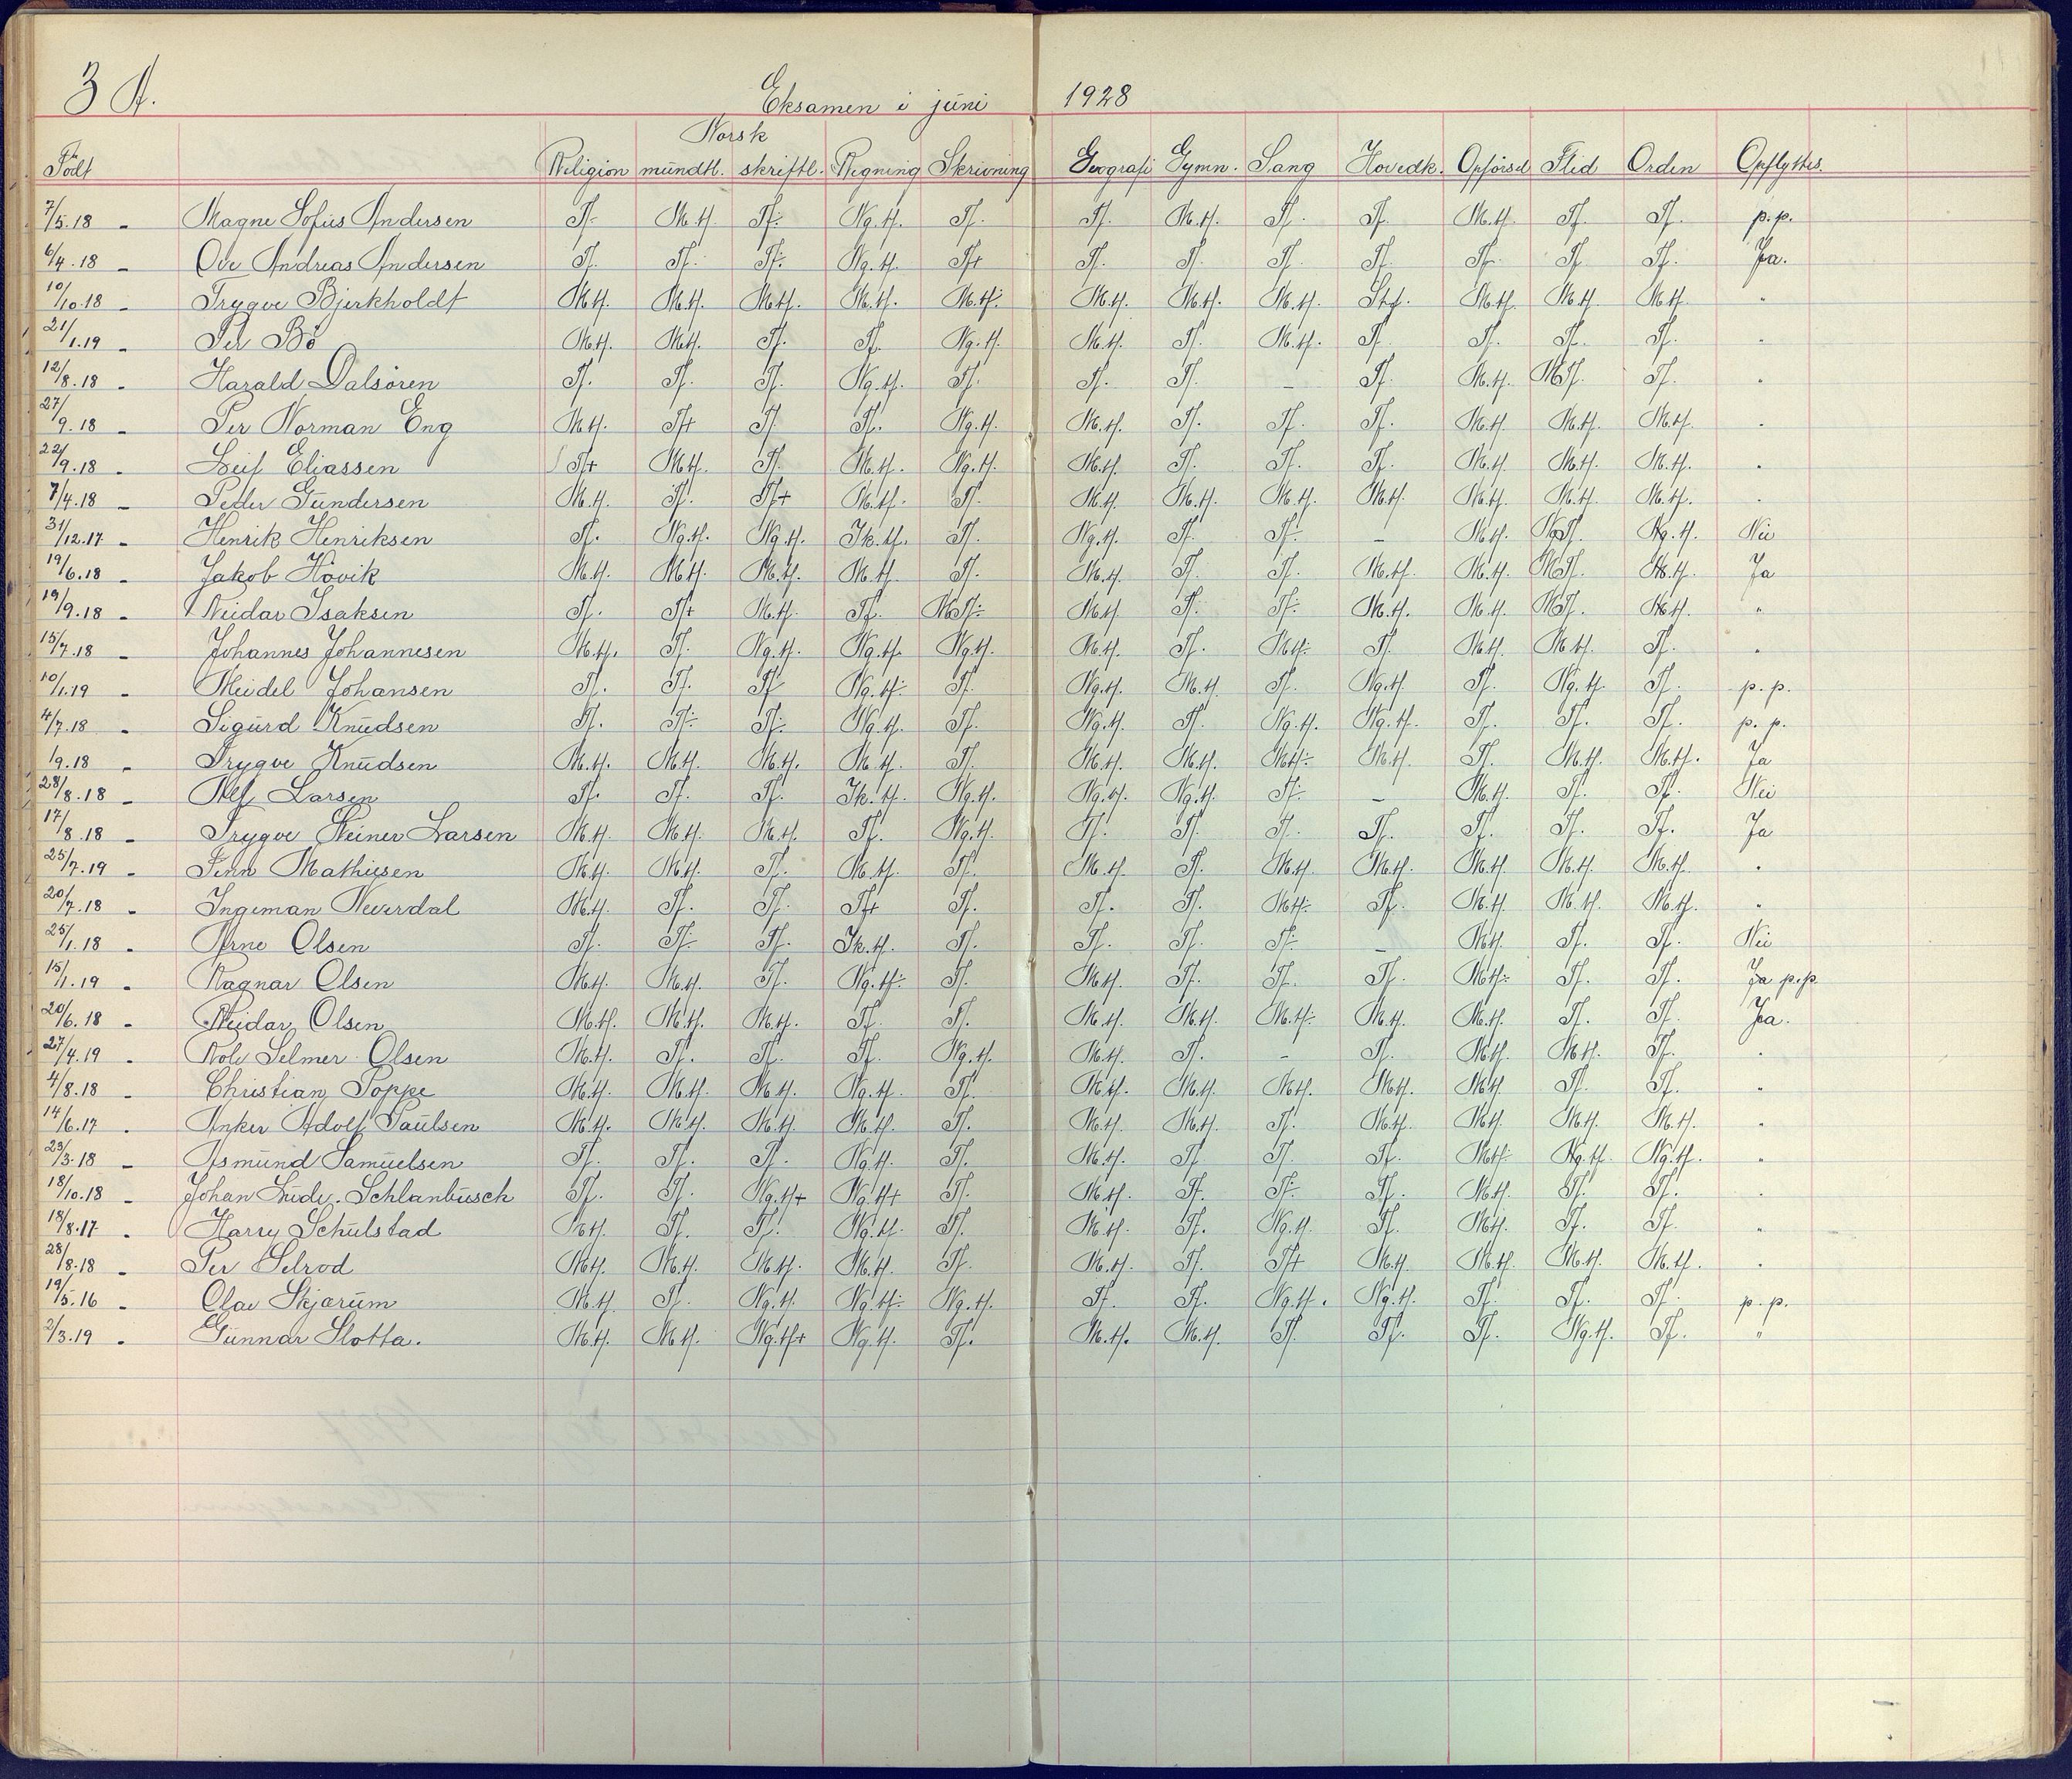 3 A. Eksamen i juni 1928
Norsk
Født Religion mundtl. skriftl. Regning Skrivning Geografi Gymn. Sang Hovedk. Opførsel Flid Orden Opflyttes.
7/5.18 - Magne Sofus Andersen Tf. M.tf. Tf÷ Ng.tf. Tf. Tf. M.tf. Tf. Tf. M.tf. Tf. Tf. p.p.
6/4.18 - Ove Andreas Andersen Tf. Tf. Tf÷ Ng.tf. Tf+ Tf. Tf. Tf. Tf. Tf. Tf. Tf. Ja.
10/10.18 - Trygve Bjerkholdt M.tf. M.tf. M.tf. M.tf. M.tf÷ M.tf. M.tf. M.tf. M.tf. M.tf. M.tf. "
21/1.19 - Per Bö M.tf. M.tf. Tf. Tf. Ng.tf. M.tf. Tf. M.tf. Tf. Tf. Tf. Tf. "
12/8.18 - Harald Dalsören Tf. Tf. Tf. Ng.tf. Tf. Tf. Tf. - Tf. M.tf. MTf. Tf. "
27/9.18 - Per Norman Eng M.tf. Tf+ Tf. Tf. Ng.tf. M.tf. Tf. Tf. Tf. M.tf. M.tf. M.tf. "
22/9.18 - Leif Eliassen Tf+ M.tf. Tf. M.tf. Ng.tf. M.tf. Tf. Tf. Tf. M.tf. M.tf. M.tf. "
7/4.18 - Peder Gundersen M.tf. Tf. Tf+ M.tf. Tf. M.tf. M.tf. M.tf. M.tf. M.tf. M.tf. M.tf. "
31/12.17 - Henrik Henriksen Tf. Ng.tf. Ng.tf. Ik.tf. Tf. Ng.tf. Tf. Tf÷ - M.tf. NgTf. Ng.tf. Nei
19/6.18 - Jakob Hövik M.tf. M.tf. M.tf. M.tf. Tf. M.tf. Tf. Tf. M.tf. M.tf. MTf. M.tf. Ja
19/9.18 - Reidar Isaksen Tf. Tf+ M.tf. Tf. MTf÷ M.tf. Tf. Tf÷ M.tf. M.tf. MTf. M.tf. "
15/7.18 - Johannes Johannesen M.tf. Tf. Ng.tf. Ng.tf. Ng.tf. M.tf. Tf. M.tf÷ Tf. M.tf. M.tf. Tf. "
10/1.19 - Meidel Johansen Tf. Tf. Tf Ng.tf÷ Tf. Ng.tf. M.tf. Tf. Ng.tf. Tf. Ng.tf. Tf. p.p.
4/7.18 - Sigurd Knudsen Tf. Tf÷ Tf÷ Ng.tf. Tf. Ng.tf. Tf. Ng.tf. Ng.tf. Tf. Tf. Tf. p.p.
/9.18 - Trygve Knudsen M.tf. M.tf. M.tf. M.tf. Tf. M.tf. M.tf. M.tf÷ M.tf. Tf. M.tf. M.tf. Ja
28/8.18 - Alf Larsen Tf. Tf. Tf. Ik.tf. Ng.tf. Ng.tf. Ng.tf. Tf÷ - M.tf. Tf. Tf. Nei
17/8.18 - Trygve Steiner Larsen M.tf. M.tf. M.tf. Tf. Ng.tf. Tf. Tf. Tf. Tf. Tf. Tf. Tf. Ja
25/7.19 - Finn Mathiesen M.tf. M.tf. Tf. M.tf. Tf. M.tf. Tf. M.tf. M.tf. M.tf. M.tf. M.tf. "
20/7.18 - Ingeman Neverdal M.tf. Tf. Tf. Tf+ Tf. Tf. Tf. M.tf÷ Tf. M.tf. M.tf. M.tf. "
25/1.18 - Arne Olsen Tf. Tf÷ Tf. Ik.tf. Tf. Tf. Tf. Tf÷ - M.tf. Tf. Tf. Nei
15/1.19 - Ragnar Olsen M.tf. M.tf. Tf. Ng.tf÷ Tf. M.tf. Tf. Tf. Tf. M.tf÷ Tf. Tf. Ja p.p.
20/6.18 - Reidar Olsen M.tf. M.tf. M.tf. Tf. Tf. M.tf. M.tf. M.tf÷ M.tf. M.tf. Tf. Tf. Ja.
27/4.19 - Rolv Selmer Olsen M.tf. Tf. Tf. Tf. Ng.tf. M.tf. Tf. - Tf. M.tf. M.tf. Tf. "
4/8.18 - Christian Poppe M.tf. M.tf. M.tf. Ng.tf. Tf. M.tf. M.tf. M.tf. M.tf. M.tf. Tf. Tf. "
14/6.17 - Anker Adolf Paulsen M.tf. M.tf. M.tf. M.tf. Tf. M.tf. M.tf. Tf. M.tf. M.tf. M.tf. M.tf. "
23/3.18 - Asmund Samuelsen Tf. Tf. Tf. Ng.tf. Tf. M.tf. Tf. Tf. Tf. M.tf÷ Ng.tf. Ng.tf. "
18/10.18 - Johan Ludv. Schlanbusch Tf. Tf. Ng.tf+ Ng.tf+ Tf. M.tf. Tf. Tf÷ Tf. M.tf. Tf. Tf. "
18/8.17 - Harry Schulstad M.tf. Tf. Tf. Ng.tf. Tf. M.tf. Tf. Ng.tf. Tf. M.tf. Tf. Tf. "
28/8.18 - Per Selrod M.tf. M.tf. M.tf. M.tf. Tf. M.tf. Tf. Tf+ M.tf. M.tf. M.tf. M.tf. "
19/5.16 - Olav Skjærum M.tf. Tf. Ng.tf. Ng.tf÷ Ng.tf. Tf. Tf. Ng.tf. Ng.tf. Tf. Tf. Tf. p.p.
2/3.19 - Gunnar Slotta. M.tf. M.tf. Ng.tf+ Ng.tf. Tf. M.tf. M.tf. Tf. Tf. Tf. Ng.tf. Tf. "